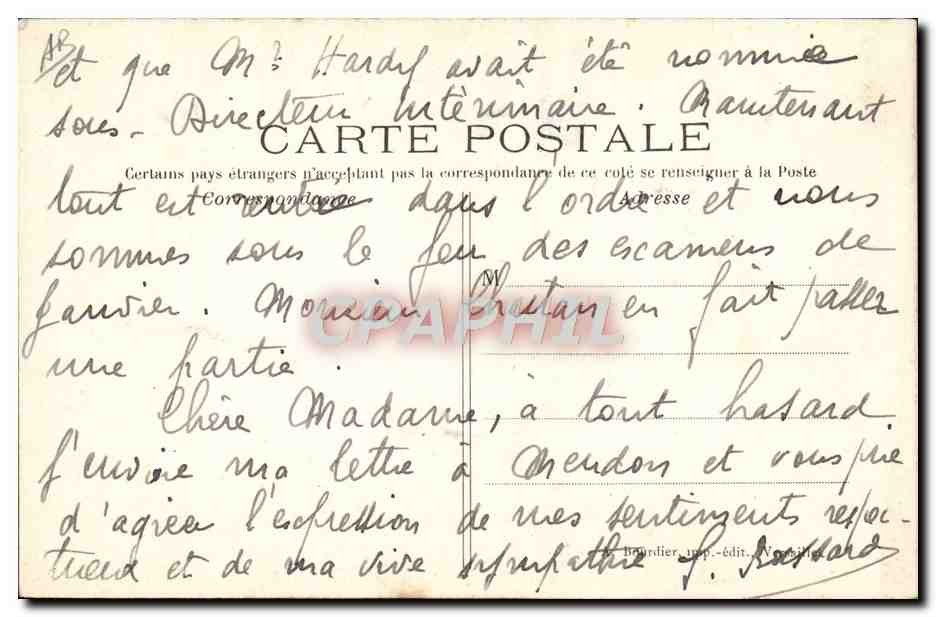 et que Mr Hardy avait été nommé
sous-Directeur intérimaire. Maintenant
CARTE POSTALE
Certains pays étrangers n'acceptant pas la correspondance de ce coté se renseigner à la Poste
Correspondance Adresse
tout est rentré dans l'ordre et nous
sommes sous le feu des examens de
M
Janvier. Monsieur en fait passer
CPAPHIL
une partie.
Chère Madame, à tout hasard
j'envoie ma lettre à Meudon et vous prie
d'agréer l'expression de mes sentiments respec-
tueux et de ma vive sympathie J.
A. Bourdier, imp.-édit., Versailles